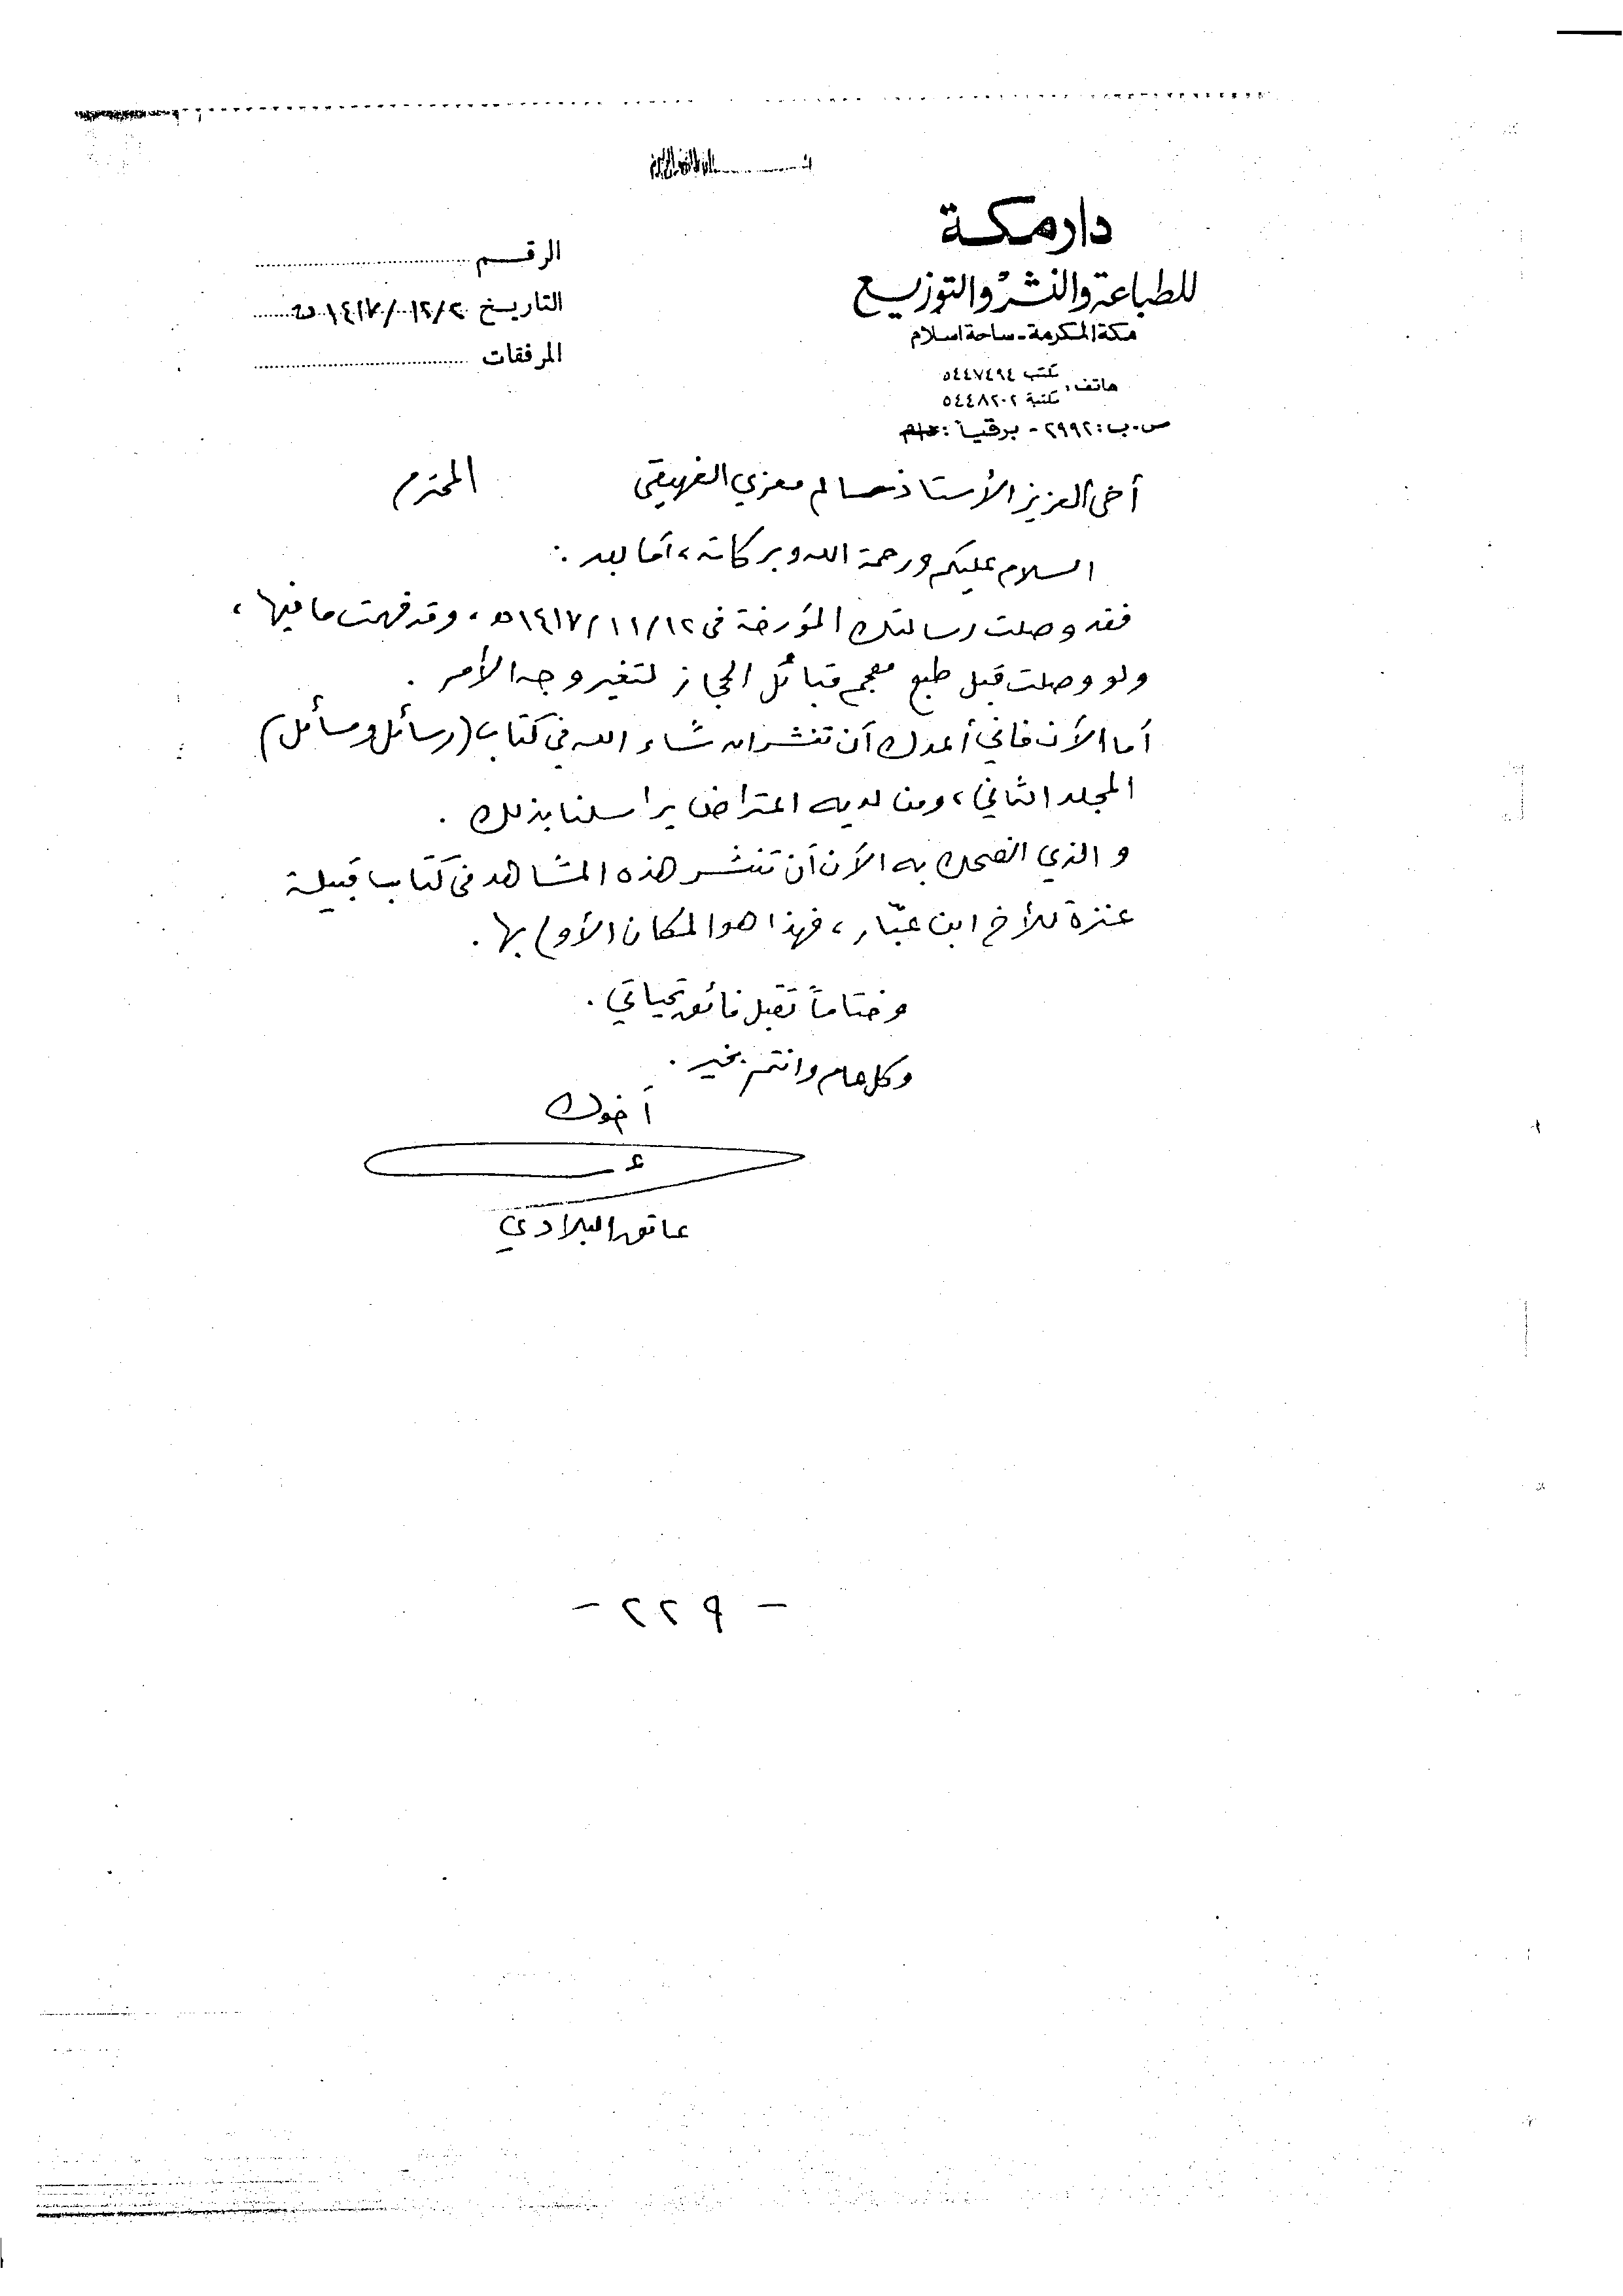 دار مكة
للطباعة والنشر والتوزيع
مكة المكرمة - ساحة اسلام
هاتف: مكتب ٥٤٤٧٤٩٤
مكتبة ٥٤٤٨٢٠٢
ص.ب: ٢٩٩٢ - برقياً:
الرقم
التاريخ ١٤١٧/١٢/٢هـ
المرفقات
أخي العزيز الأستاذ سالم معزي الفهيقي المحترم
السلام عليكم ورحمة الله وبركاته، أما بعد:
فقد وصلت رسالتك المؤرخة في ١٤١٧/١١/١٢هـ، وقد فهمت ما فيها،
ولو وصلت قبل طبع معجم قبائل الحجاز لتغير وجه الأمر.
أما الآن فاني أعدك أن تنشر ان شاء الله في كتاب (رسائل ومسائل)
المجلد الثاني، ومن لديه اعتراض يراسلنا بذلك.
والذي انصحك به الآن أن تنشر هذه المشاهد في كتاب قبيلة
عنزة للأخ ابن عبّار، فهذا هو المكان الأولى بها.
وختاماً تقبل فائق تحياتي.
وكل عام وانتم بخير.
أخوك
عاتق البلادي
- ٢٢٩ -